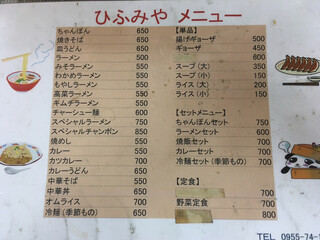 ひふみや メニュー
ちゃんぽん 650
焼きそば 650
皿うどん 650
ラーメン 500
みそラーメン 550
わかめラーメン 550
もやしラーメン 550
高菜ラーメン 550
キムチラーメン 550
チャーシュー麺 600
スペシャルラーメン 750
スペシャルチャンポン 850
焼めし 550
カレー 550
カツカレー 700
カレーうどん 650
中華そば 550
中華丼 650
オムライス 700
冷麺(季節もの) 650
【単品】
揚げギョーザ 500
ギョーザ 450
600
スープ(大) 350
スープ(小) 150
ライス(大) 200
ライス(小) 150
【セットメニュー】
ちゃんぽんセット 750
ラーメンセット 600
焼飯セット 700
カレーセット 700
冷麺セット(季節もの) 750
【定食】
700
野菜定食 700
800
TEL 0955-74-